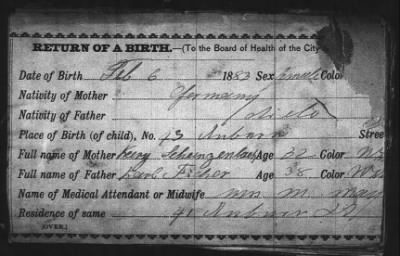 RETURN OF A BIRTH.—(To the Board of Health of the City
Date of Birth Feb 6 1883 Sex female Color
Nativity of Mother Germany
Nativity of Father ditto
Place of Birth (of child), No. 73 Auburn Street
Full name of Mother Age 22 Color
Full name of Father Karl Fischer Age 38 Color
Name of Medical Attendant or Midwife Mrs M.
Residence of same 91 Auburn St
(OVER.)